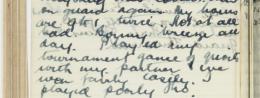 on guard again. My hours
are 9 to 1, twice. Not at all
bad. Strong breeze all
day. Played my
tournament game of quoits
with my partner & we
won fairly easily.
played poorly too.